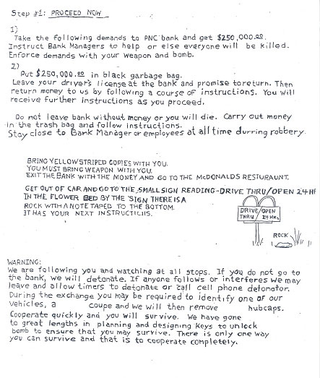 Step #1: PROCEED NOW
1)
Take the following demands to PNC bank and get $250,000.00.
Instruct Bank Managers to help or else everyone will be killed.
Enforce demands with your weapon and bomb.
2)
Put $250,000.00 in black garbage bag.
Leave your driver's license at the bank and promise to return. Then
return money to us by following a course of instructions. You will
receive further instructions as you proceed.
Do not leave bank without money or you will die. Carry out money
in the trash bag and follow instructions.
Stay close to Bank Manager or employees at all time durring robbery.
BRING YELLOW STRIPED COPIES WITH YOU.
YOU MUST BRING WEAPON WITH YOU.
EXIT THE BANK WITH THE MONEY AND GO TO THE McDONALDS RESTURAUNT.
GET OUT OF CAR AND GO TO THE SMALL SIGN READING-DRIVE THRU/OPEN 24 HR
IN THE FLOWER BED BY THE SIGN THERE IS A
ROCK WITH A NOTE TAPED TO THE BOTTOM.
IT HAS YOUR NEXT INSTRUCTIONS.
DRIVE THRU
OPEN 24 Hr.
ROCK
WARNING:
We are following you and watching at all stops. If you do not go to
the bank, we will detonate. If anyone follows or interferes we may
leave and allow timers to detonate or call cell phone detonator.
During the exchange you may be required to identify one of our
vehicles, a coupe and we will then remove hubcaps.
Cooperate quickly and you will survive. We have gone
to great lengths in planning and designing keys to unlock
bomb to ensure that you may survive. There is only one way
you can survive and that is to cooperate completely.